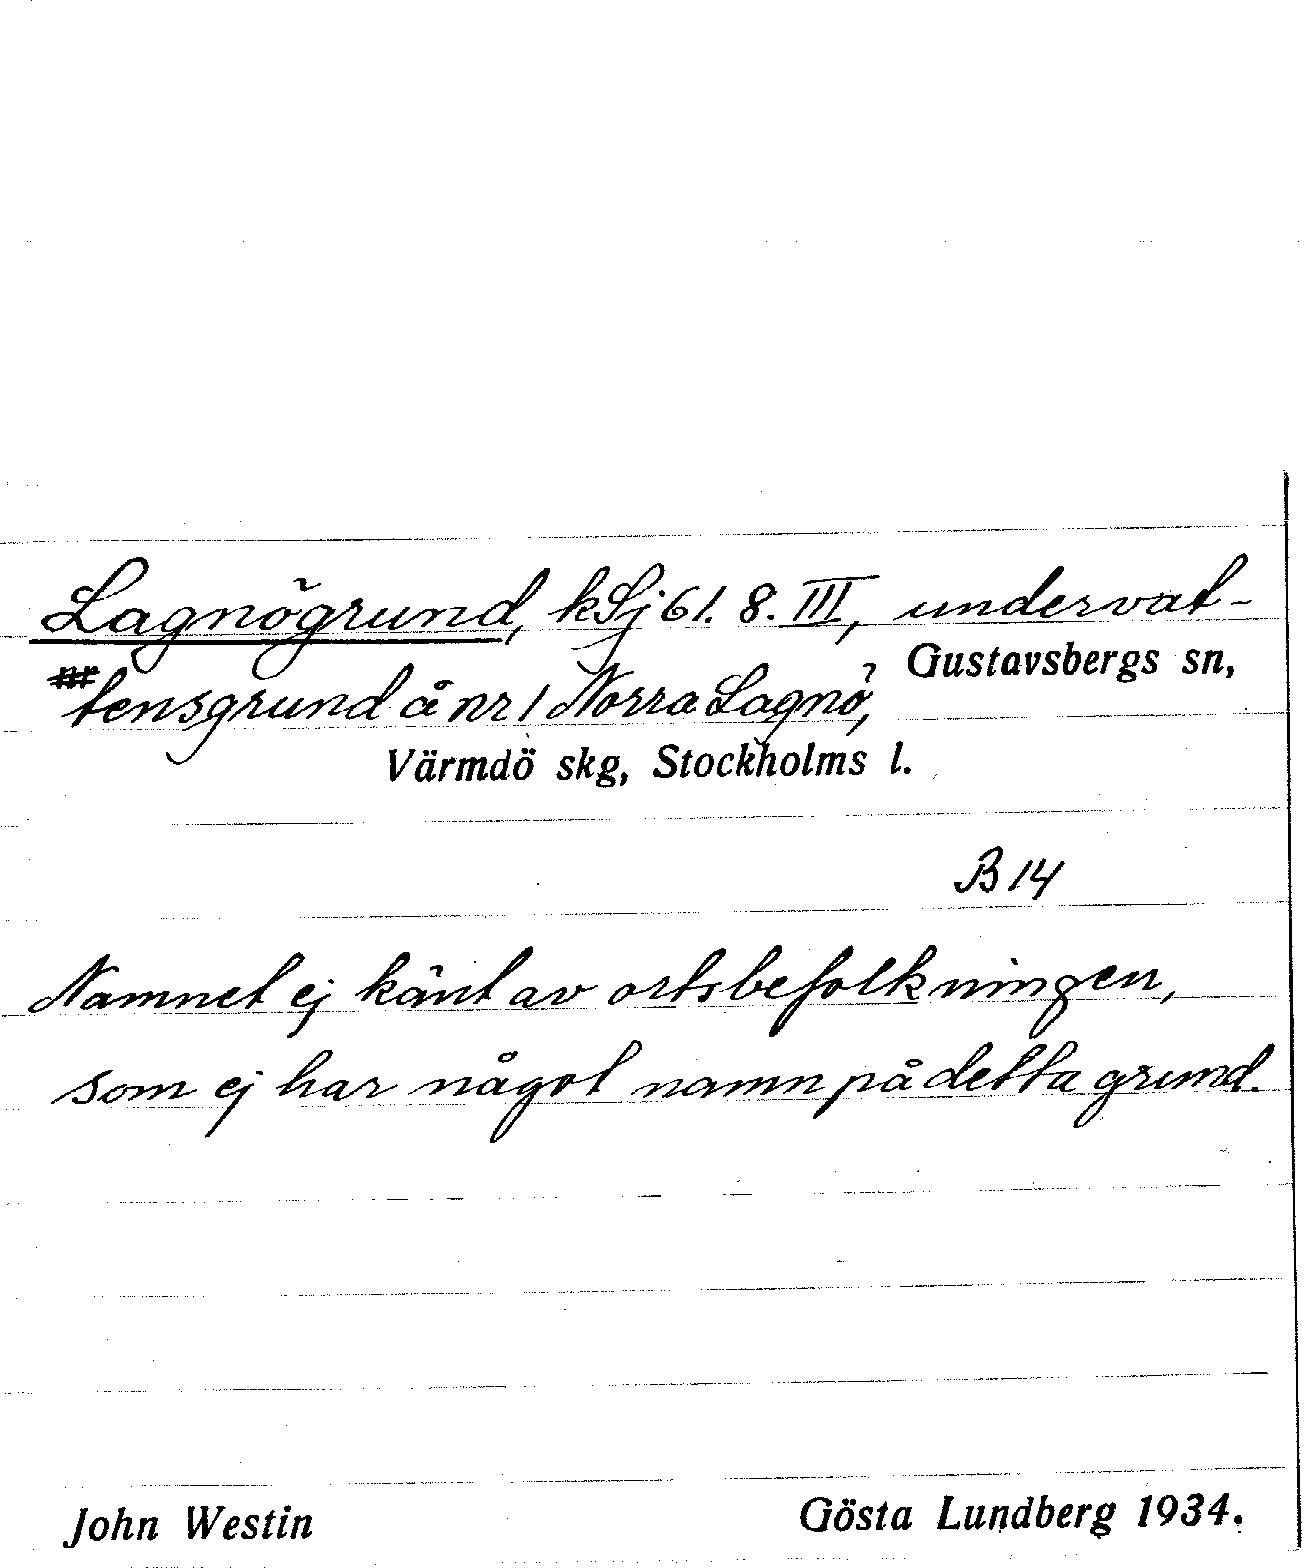 Lagnögrund, kSj 61. 8. III, undervat-
tensgrund å nr 1 Norra Lagnö, Gustavsbergs sn,
Värmdö skg, Stockholms l.
B 14
Namnet ej känt av ortsbefolkningen,
som ej har något namn på detta grund.
John Westin Gösta Lundberg 1934.